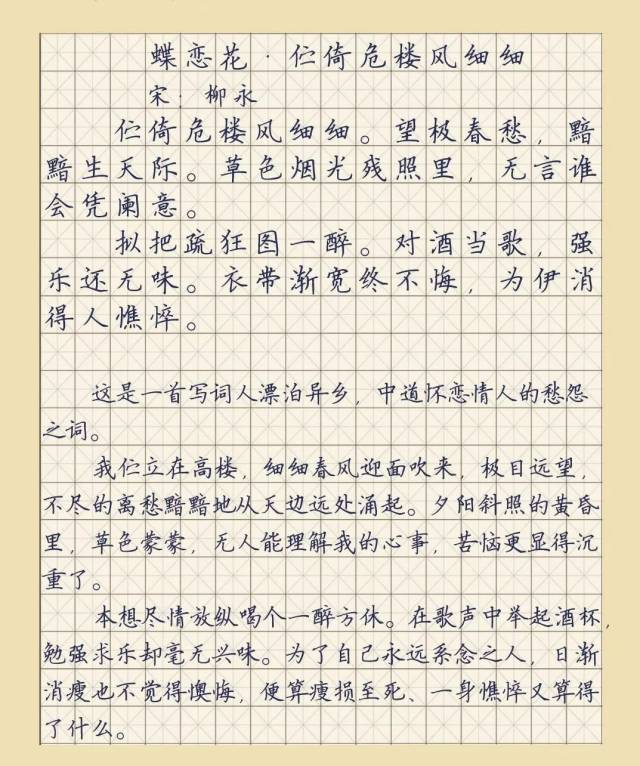 蝶恋花·伫倚危楼风细细
宋：柳永
伫倚危楼风细细。望极春愁，黯
黯生天际。草色烟光残照里，无言谁
会凭阑意。
拟把疏狂图一醉。对酒当歌，强
乐还无味。衣带渐宽终不悔，为伊消
得人憔悴。
这是一首写词人漂泊异乡，中道怀恋情人的愁怨
之词。
我伫立在高楼，细细春风迎面吹来，极目远望，
不尽的离愁黯黯地从天边远处涌起。夕阳斜照的黄昏
里，草色蒙蒙，无人能理解我的心事，苦恼更显得沉
重了。
本想尽情放纵喝个一醉方休。在歌声中举起酒杯，
勉强求乐却毫无兴味。为了自己永远系念之人，日渐
消瘦也不觉得懊悔，便算瘦损至死、一身憔悴又算得
了什么。